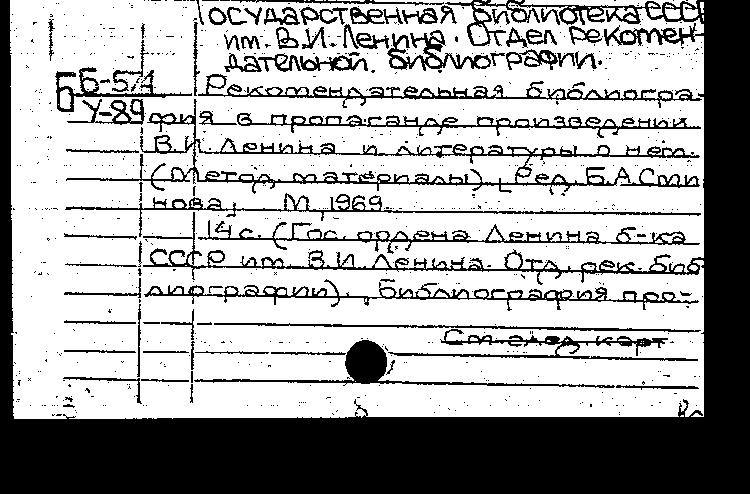 Государственная библиотека СССР
им. В.И. Ленина. Отдел рекомен-
дательной библиографии.
Б Б-574 Рекомендательная библиогра-
У-89 фия в пропаганде произведений
В.И. Ленина и литературы о нем.
(Метод. материалы). [Ред. Б.А. Сми
нова]. М, 1969.
14 с. (Гос. ордена Ленина б-ка
СССР им. В.И. Ленина. Отд. рек. биб
лиографии). Библиография про-
См след карт